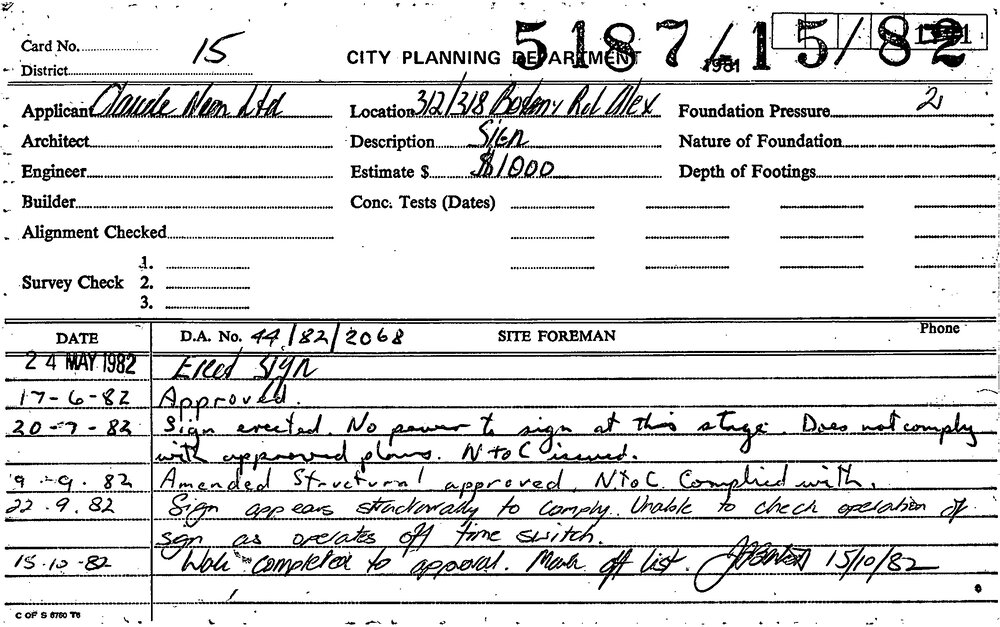 Card No. 15
District
CITY PLANNING DEPARTMENT
5187/15/82
1981
Applicant Claude Neon Ltd
Location 312/318 Botany Rd Alex
Foundation Pressure 2
Architect
Description Sign
Nature of Foundation
Engineer
Estimate $ $1000
Depth of Footings
Builder
Conc. Tests (Dates)
Alignment Checked
Survey Check
1.
2.
3.
DATE D.A. No. 44/82/2068 SITE FOREMAN Phone
24 MAY 1982 Erect Sign
17-6-82 Approved.
20-7-82 Sign erected. No power to sign at this stage. Does not comply
with approved plans. N to C issued.
9.-9.82 Amended Structural approved. N to C Complied with.
22.9.82 Sign appears structurally to comply. Unable to check operation of
sign as operates off time switch.
15.10-82 Work completed to approval. Mark off list. 15/10/82
C OF S 6760 T6